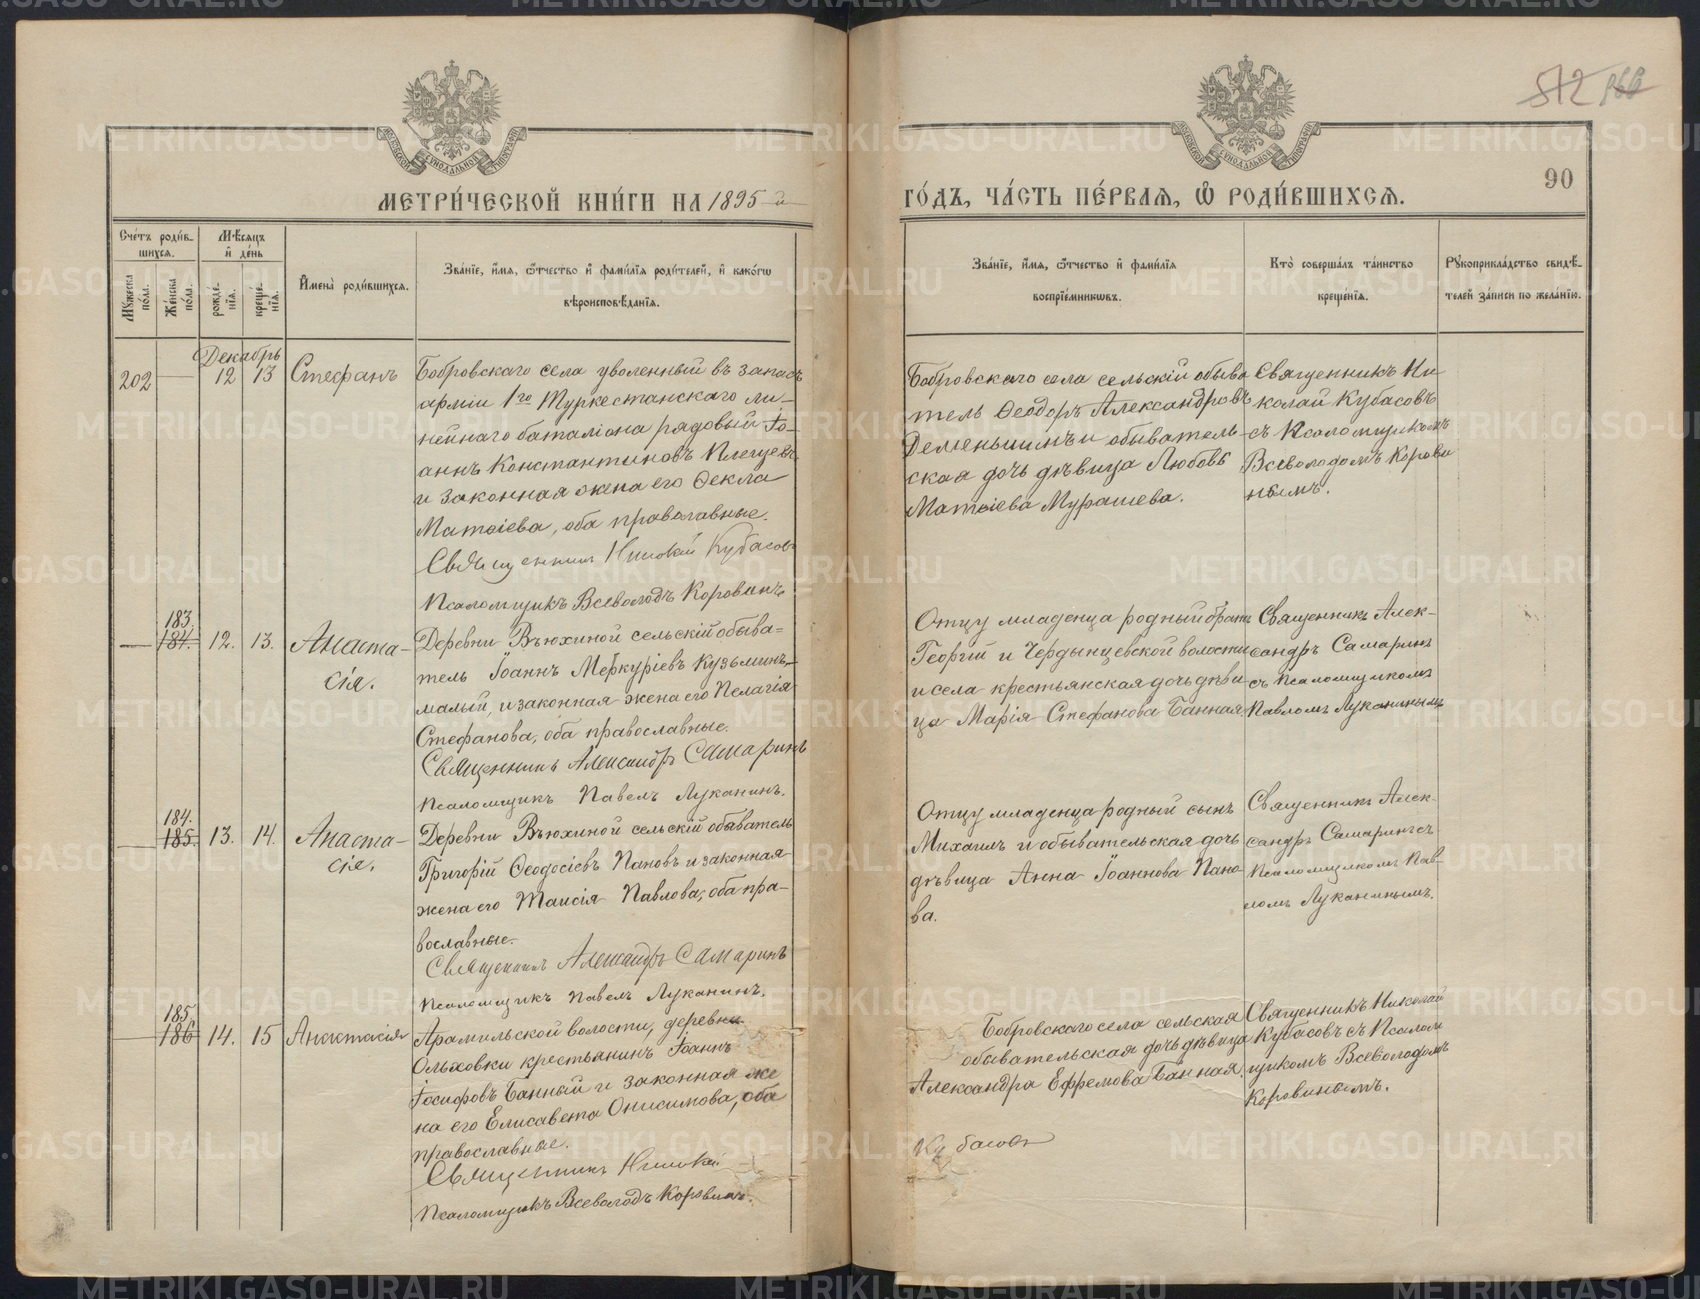 512 166
90
МЕТРИ́ЧЕСКОЙ КНИ́ГИ НА 1895 й
ГО́ДЪ, ЧА́СТЬ ПЕ́РВАЯ, Ѡ҆ РОДИ́ВШИХСЯ.
Сче́тъ роди́в-
шихся.
Мꙋ́жеска по́ла.
Же́нска по́ла.
Мѣ́сяцъ
и҆ де́нь
рожде́-
нїя.
креще́-
нїя.
И҆мена̀ роди́вшихся.
Зва́нїе, и҆́мя, ѻ҆́тчество и҆ фами́лїя роди́телей, и҆ како́гѡ
вѣроисповѣ́данїя.
Зва́нїе, и҆́мя, ѻ҆́тчество и҆ фами́лїя
воспрїе́мникѡвъ.
Кто̀ соверша́лъ та́инство
креще́нїя.
Рꙋкоприкла́дство свидѣ́-
телей за́писи по жела́нїю.
Декабрь
202 — 12 13 Стефанъ
Бобровскаго села уволенный въ запасъ
арміи 1го Туркестанскаго ли-
нейнаго баталіона рядовый Іо-
аннъ Константиновъ Плещевъ
и законная жена его Ѳекла
Матѳіева, оба православные.
Священникъ Николай Кубасовъ
Псаломщикъ Всеволодъ Коровинъ.
Бобровскаго села сельскій обыва
тель Ѳеодоръ Александровъ
Деменьшинъ и обыватель-
ская дочь дѣвица Любовь
Матѳіева Мурашева.
Священникъ Ни-
колай Кубасовъ
съ Псаломщикомъ
Всеволодомъ Корови
нымъ.
183.
— 184. 12. 13. Анаста-
сія.
Деревни Въюхиной сельскій обыва=
тель Іоаннъ Меркуріевъ Кузьминъ,
малый, и законная жена его Пелагія
Стефанова, оба православные.
Священникъ Александръ Самаринъ
Псаломщикъ Павелъ Луканинъ.
Отцу младенца родный братъ
Георгій и Чердынцевской волости
и села крестьянская дочь дѣви
ца Марія Стефанова Банная
Священникъ Алек-
сандръ Самаринъ
съ Псаломщикомъ
Павломъ Луканинымъ
184.
— 185. 13. 14. Анаста-
сія.
Деревни Въюхиной сельскій обыватель
Григорій Ѳеодосіевъ Пановъ и законная
жена его Таисія Павлова, оба пра-
вославные.
Священникъ Александръ Самаринъ
Псаломщикъ Павелъ Луканинъ.
Отцу младенца родный сынъ
Михаилъ и обывательская дочь
дѣвица Анна Іоаннова Пано
ва.
Священникъ Алек-
сандръ Самаринъ съ
Псаломщикомъ Пав-
ломъ Луканинымъ.
185.
— 186 14. 15 Анастасія
Арамильской волости, деревни
Ольховки крестьянинъ Іоаннъ
Іосифовъ Банный и законная же
на его Елисавета Онисимова, оба
православные.
Священникъ Николай
Псаломщикъ Всеволодъ Коровинъ.
Бобровскаго села сельская
обывательская дочь дѣвица
Александра Ефремова Банная.
Кубасовъ
Священникъ Николай
Кубасовъ съ Псалом
щикомъ Всеволодомъ
Коровинымъ.
METRIKI.GASO-URAL.RU